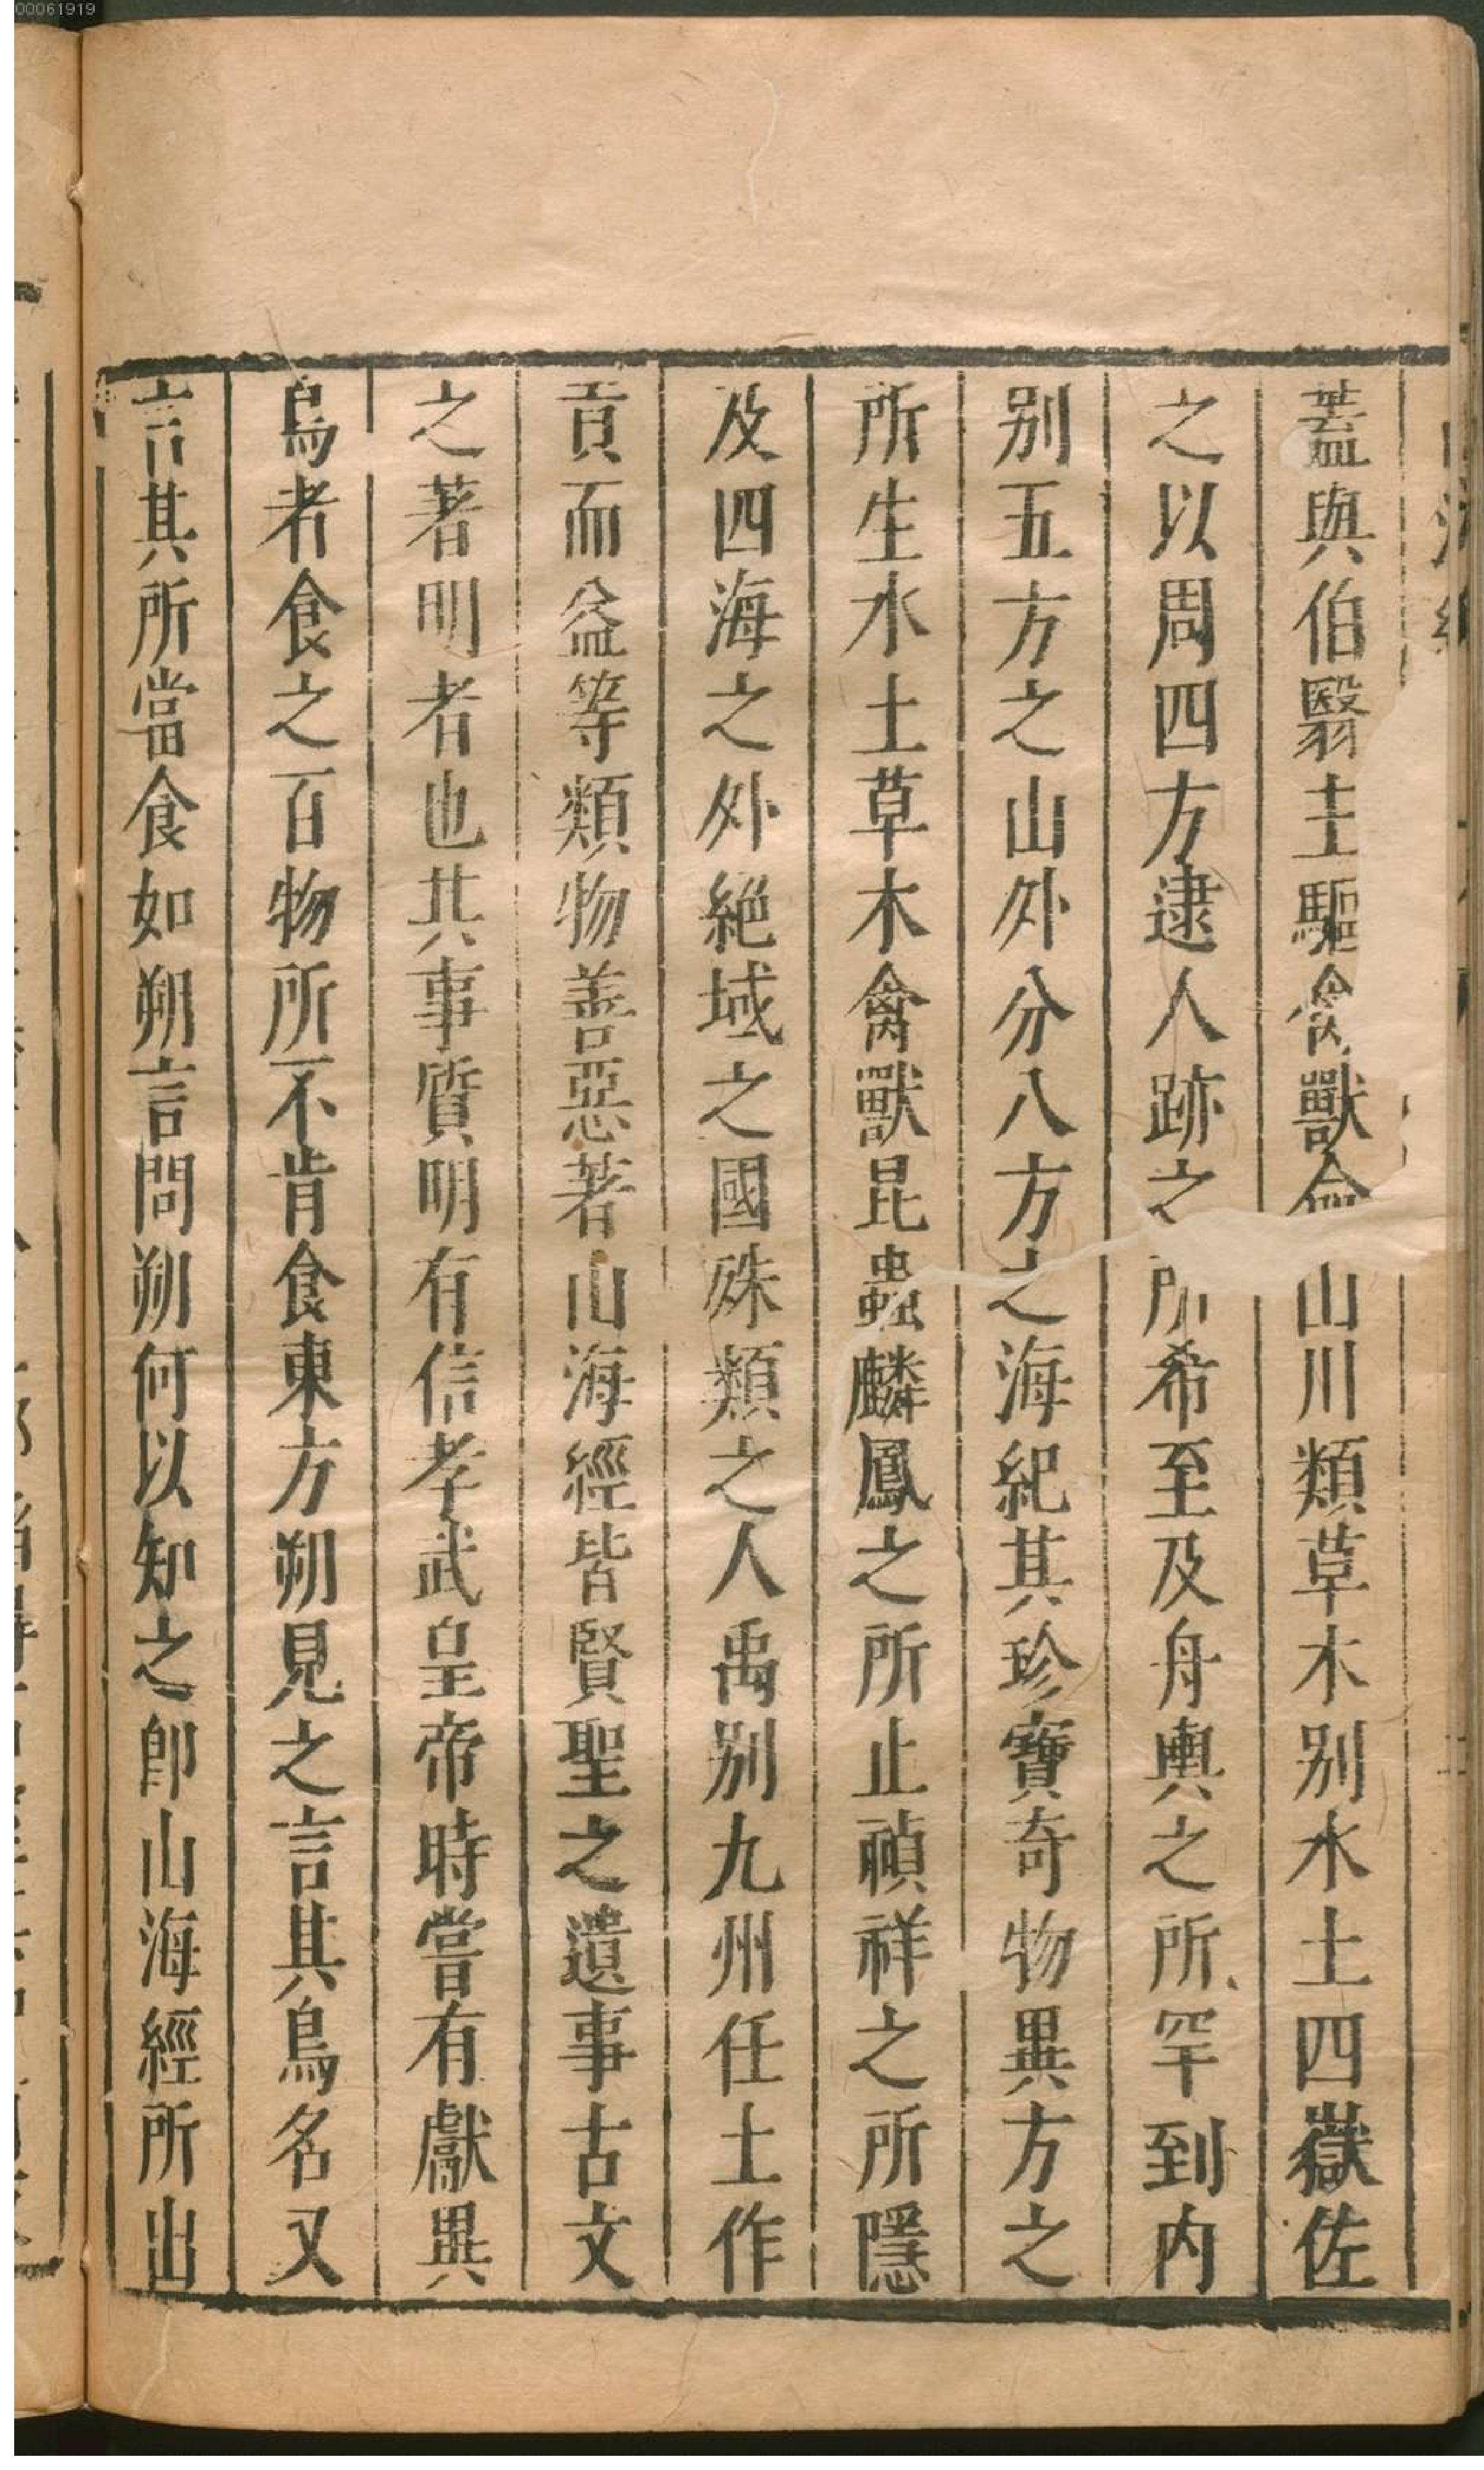 00061919
蓋與伯翳主驅禽獸命山川類草木别水土四嶽佐
之以周四方逮人跡之所希至及舟輿之所罕到内
别五方之山外分八方之海紀其珍寶奇物異方之
所生水土草木禽獸昆蟲麟鳳之所止禎祥之所隱
及四海之外絶域之國殊類之人禹别九州任土作
貢而益等類物善惡著山海經皆賢聖之遺事古文
之著明者也其事質明有信孝武皇帝時嘗有獻異
鳥者食之百物所不肯食東方朔見之言其鳥名又
言其所當食如朔言問朔何以知之卽山海經所出